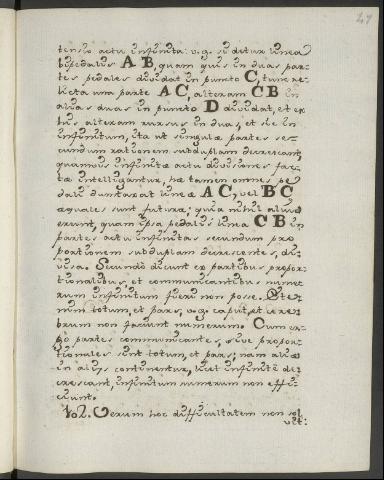 27
tensio actu infinita: v.g. si detur linea
bipedalis A B, quam quis in duas par-
tes pedales dividat in puncto C, tunc re-
licta una parte A C, alteram C B in
alias duas in puncto D dividat, et ex
his alteram rursus in duas, et sic in
infinitum, ita ut singulæ partes se-
cundum rationem subduplam decrescant,
quamvis infinitæ actu divisiones fac-
tæ intelligantur, hæ tamen omnes pe-
dali duntaxat lineæ A C, vel B C
æquales sunt futuræ; quia nihil aliud
erunt, quam ipsa pedalis linea C B in
partes actu infinitas secundum pro
portionem subduplam decrescente, di-
visa. Secundò dicunt ex partibus propor-
tionalibus, et communicantibus nume-
rum infinitum fieri non posse. Ete-
nim totum, et pars, v.g. caput, et cere-
brum non faciunt numerum. Cum er-
go partes communicantes, sive propor-
tionales sint totum, et pars; nam aliæ
in alijs continentur, licet infinitè de-
crescant, infinitum numerum non effi-
ciunt.
102. Verum hoc difficultatem non sol
vit: